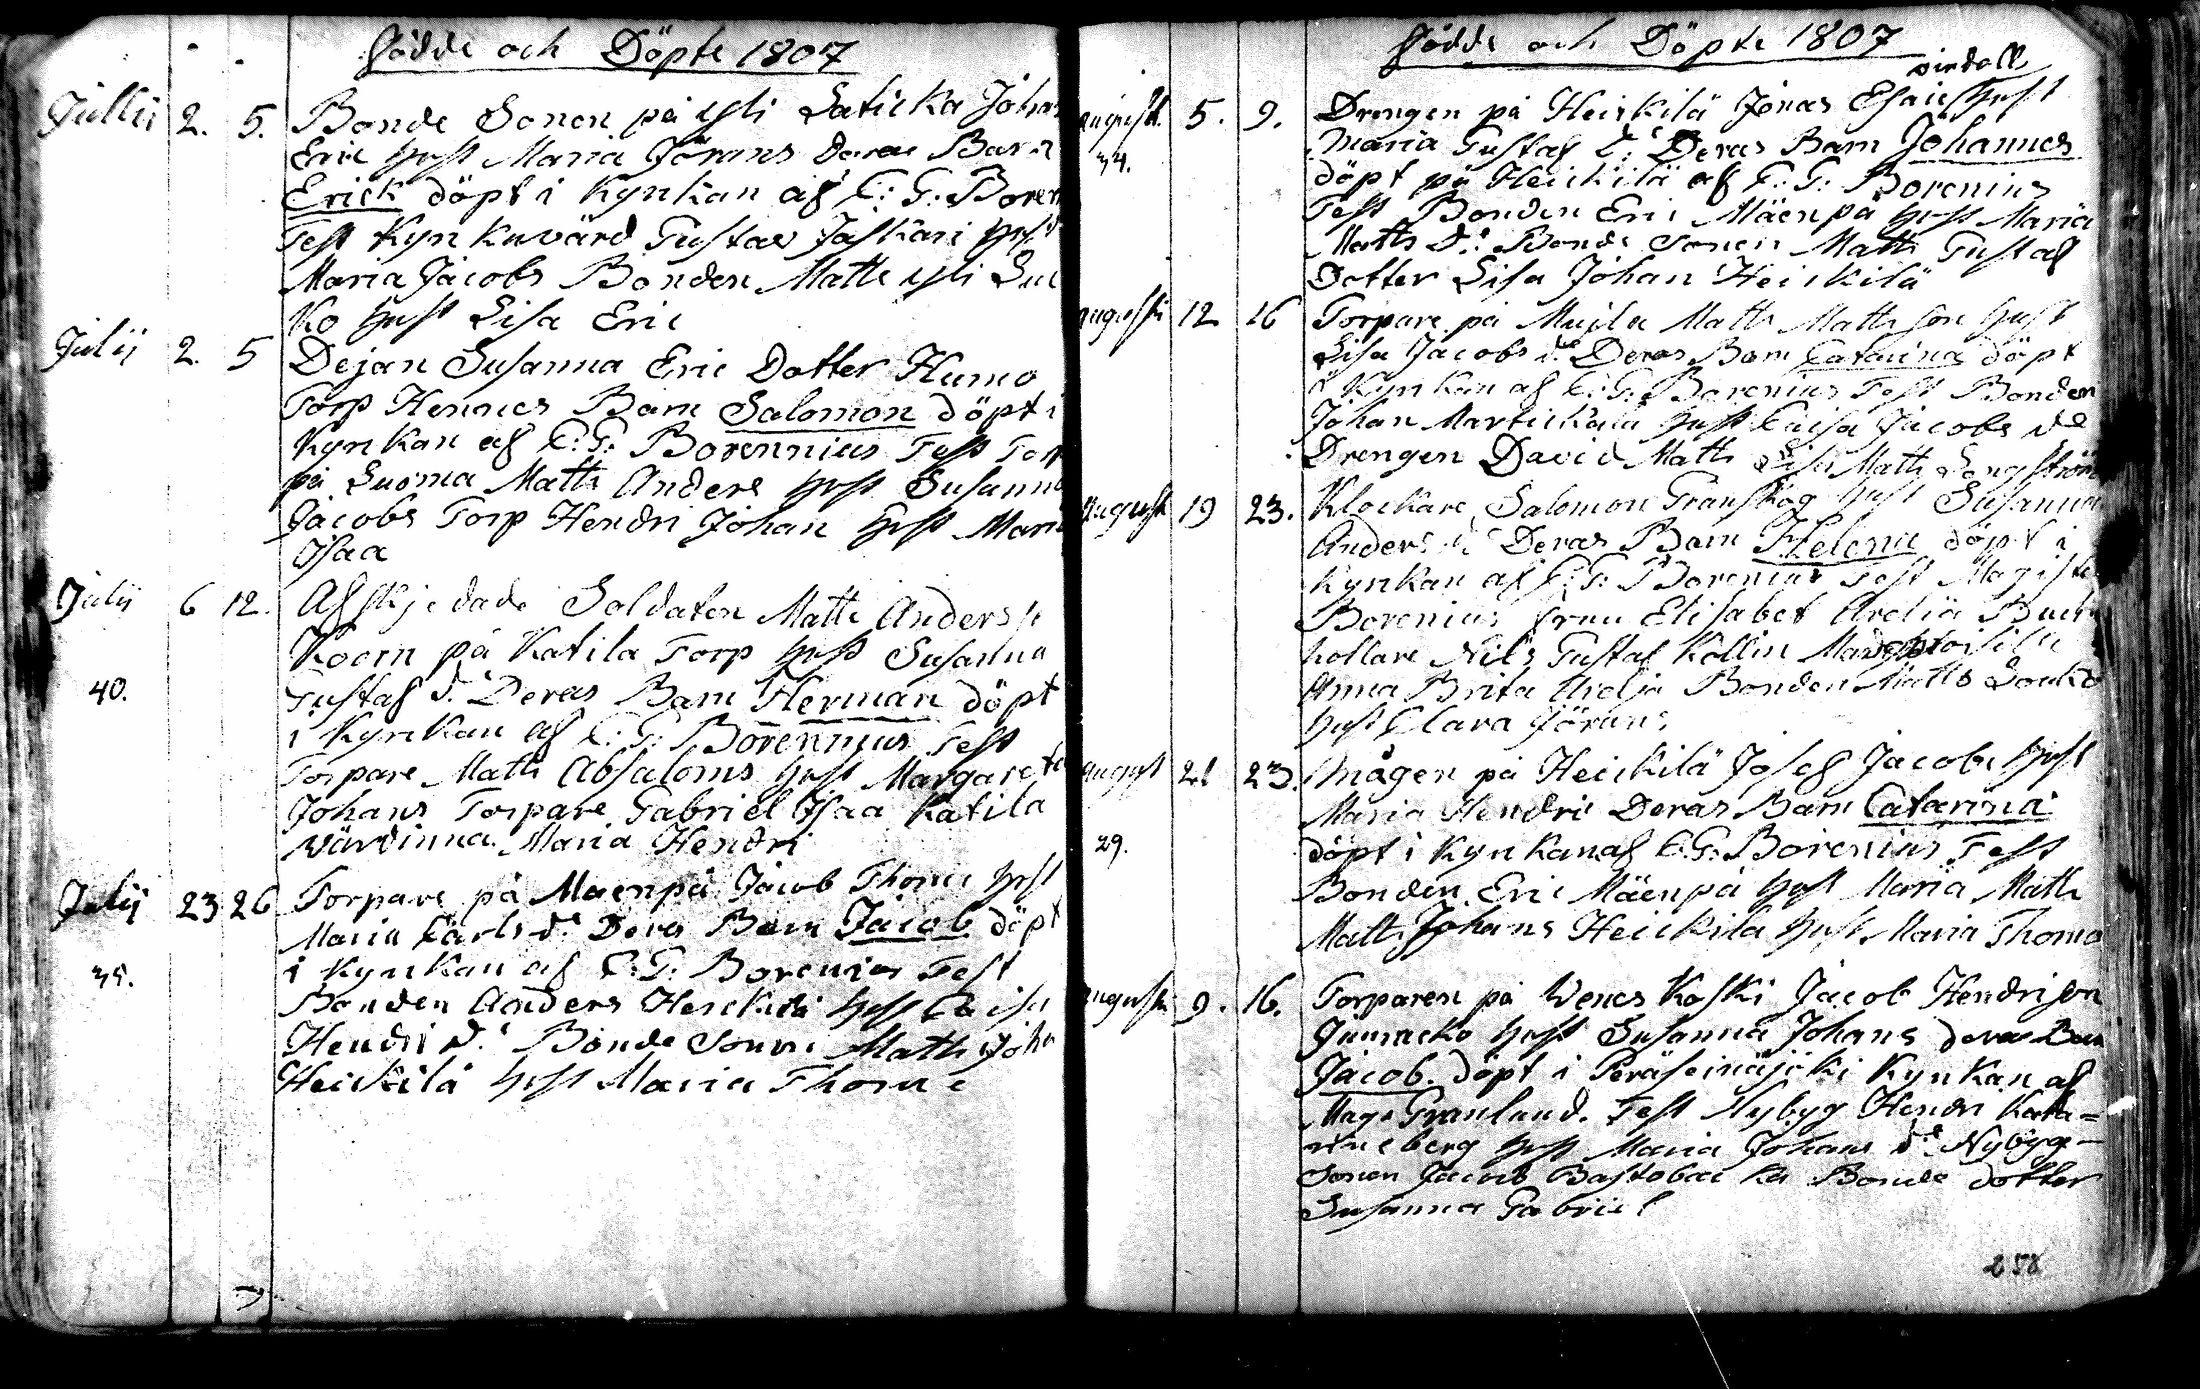 födde och Döpte 1807
Julii 2. 5. Bonde Sonen på yli Saticka Johan
Eric hust Maria Jörans deras Barn
Erick döpt i Kyrkan af C: G: Boren
Test Kyrkuvärd Gustav Jaskari hust
Maria Jacobs Bonden Matts yli
Ko hust Lisa Eric
Julij 2. 5 Dejan Susanna Eric Dotter Humo
Torp Hennes Barn Salomon döpt i
Kyrkan af C: G: Borennius Test
på Suoma Matts Anders hust Susanna
Jacobs Torp Hendri Johan hust Maria
Isaa
Julij 6 12. Afskjedade Soldaten Matts Anders
Koorn på Katila Torp hust Susanna
40. Gustaf d: Deras Barn Herman döpt
i Kyrkan af C: G: Borennius Test
Torpare Matts Absaloms hust Margareta
Johans Torpare Gabriel Isaa Katila
värdinna Maria Hendri
Julij 23 26 Torpare på Maenpä Jacob Thome hust
Maria Carls d: Deras Barn Jacob döpt
35. i Kyrkan af C: G: Borenius Test
Bonden Anders Heickilä hust Caisa
Hendri d: Bonde Sonen Matts Joha
Heickilä hust Maria Thome
födde och Döpte 1807
August 5. 9. Drengen på Heickilä Jonas Esaie hust
34. Maria Gustaf d: Deras Barn Johannes
döpt på Heickilä af C: G: Borenius
Test Bonden Eric Mäenpä hust Maria
Matts d: Bonde Sonen Matts Gustaf
Dotter Lisa Johan Heickilä
Augusti 12 16 Torpare på Mujla Matts Matts son hust
Lisa Jacobs d: Deras Barn Catarina döpt
i Kyrkan af C: G: Borenius Test Bonden
Johan Martickala hust Caisa Jacobs d:
Drengen David Matts Lisa Matts
August 19 23. Klockare Salomon Granskog hust Susanna
Anders d: Deras Barn Helena döpt i
Kyrkan af C: G: Borenius Test Magister
Borenius fruu Elisabet Arelia
hollare Nils Gustaf Kollin
Anna Brita Arelja Bonden Matts Louko
hust Clara Jörans
August 21 23. Mågen på Heickilä Josef Jacobs hust
Maria Hendri Deras Barn Catarina
29. döpt i Kyrkan af C. G: Borenius Test
Bonden Eric Mäenpä hust Maria Matts
Matts Johans Heickilä hust Maria Thome
Augusti 9. 16. Torparen på Wenes Koski Jacob Hendrison
hust Susanna Johans deras Barn
Jacob döpt i Peräseinäjöki Kyrkan af
Mag: Granlund. Test Nybyg Hendri Kata=
rine berg hust Maria Johans d: Nybyg-
Sonen Jacob Bastubacka Bonde dotter
Susanna Gabriel
258